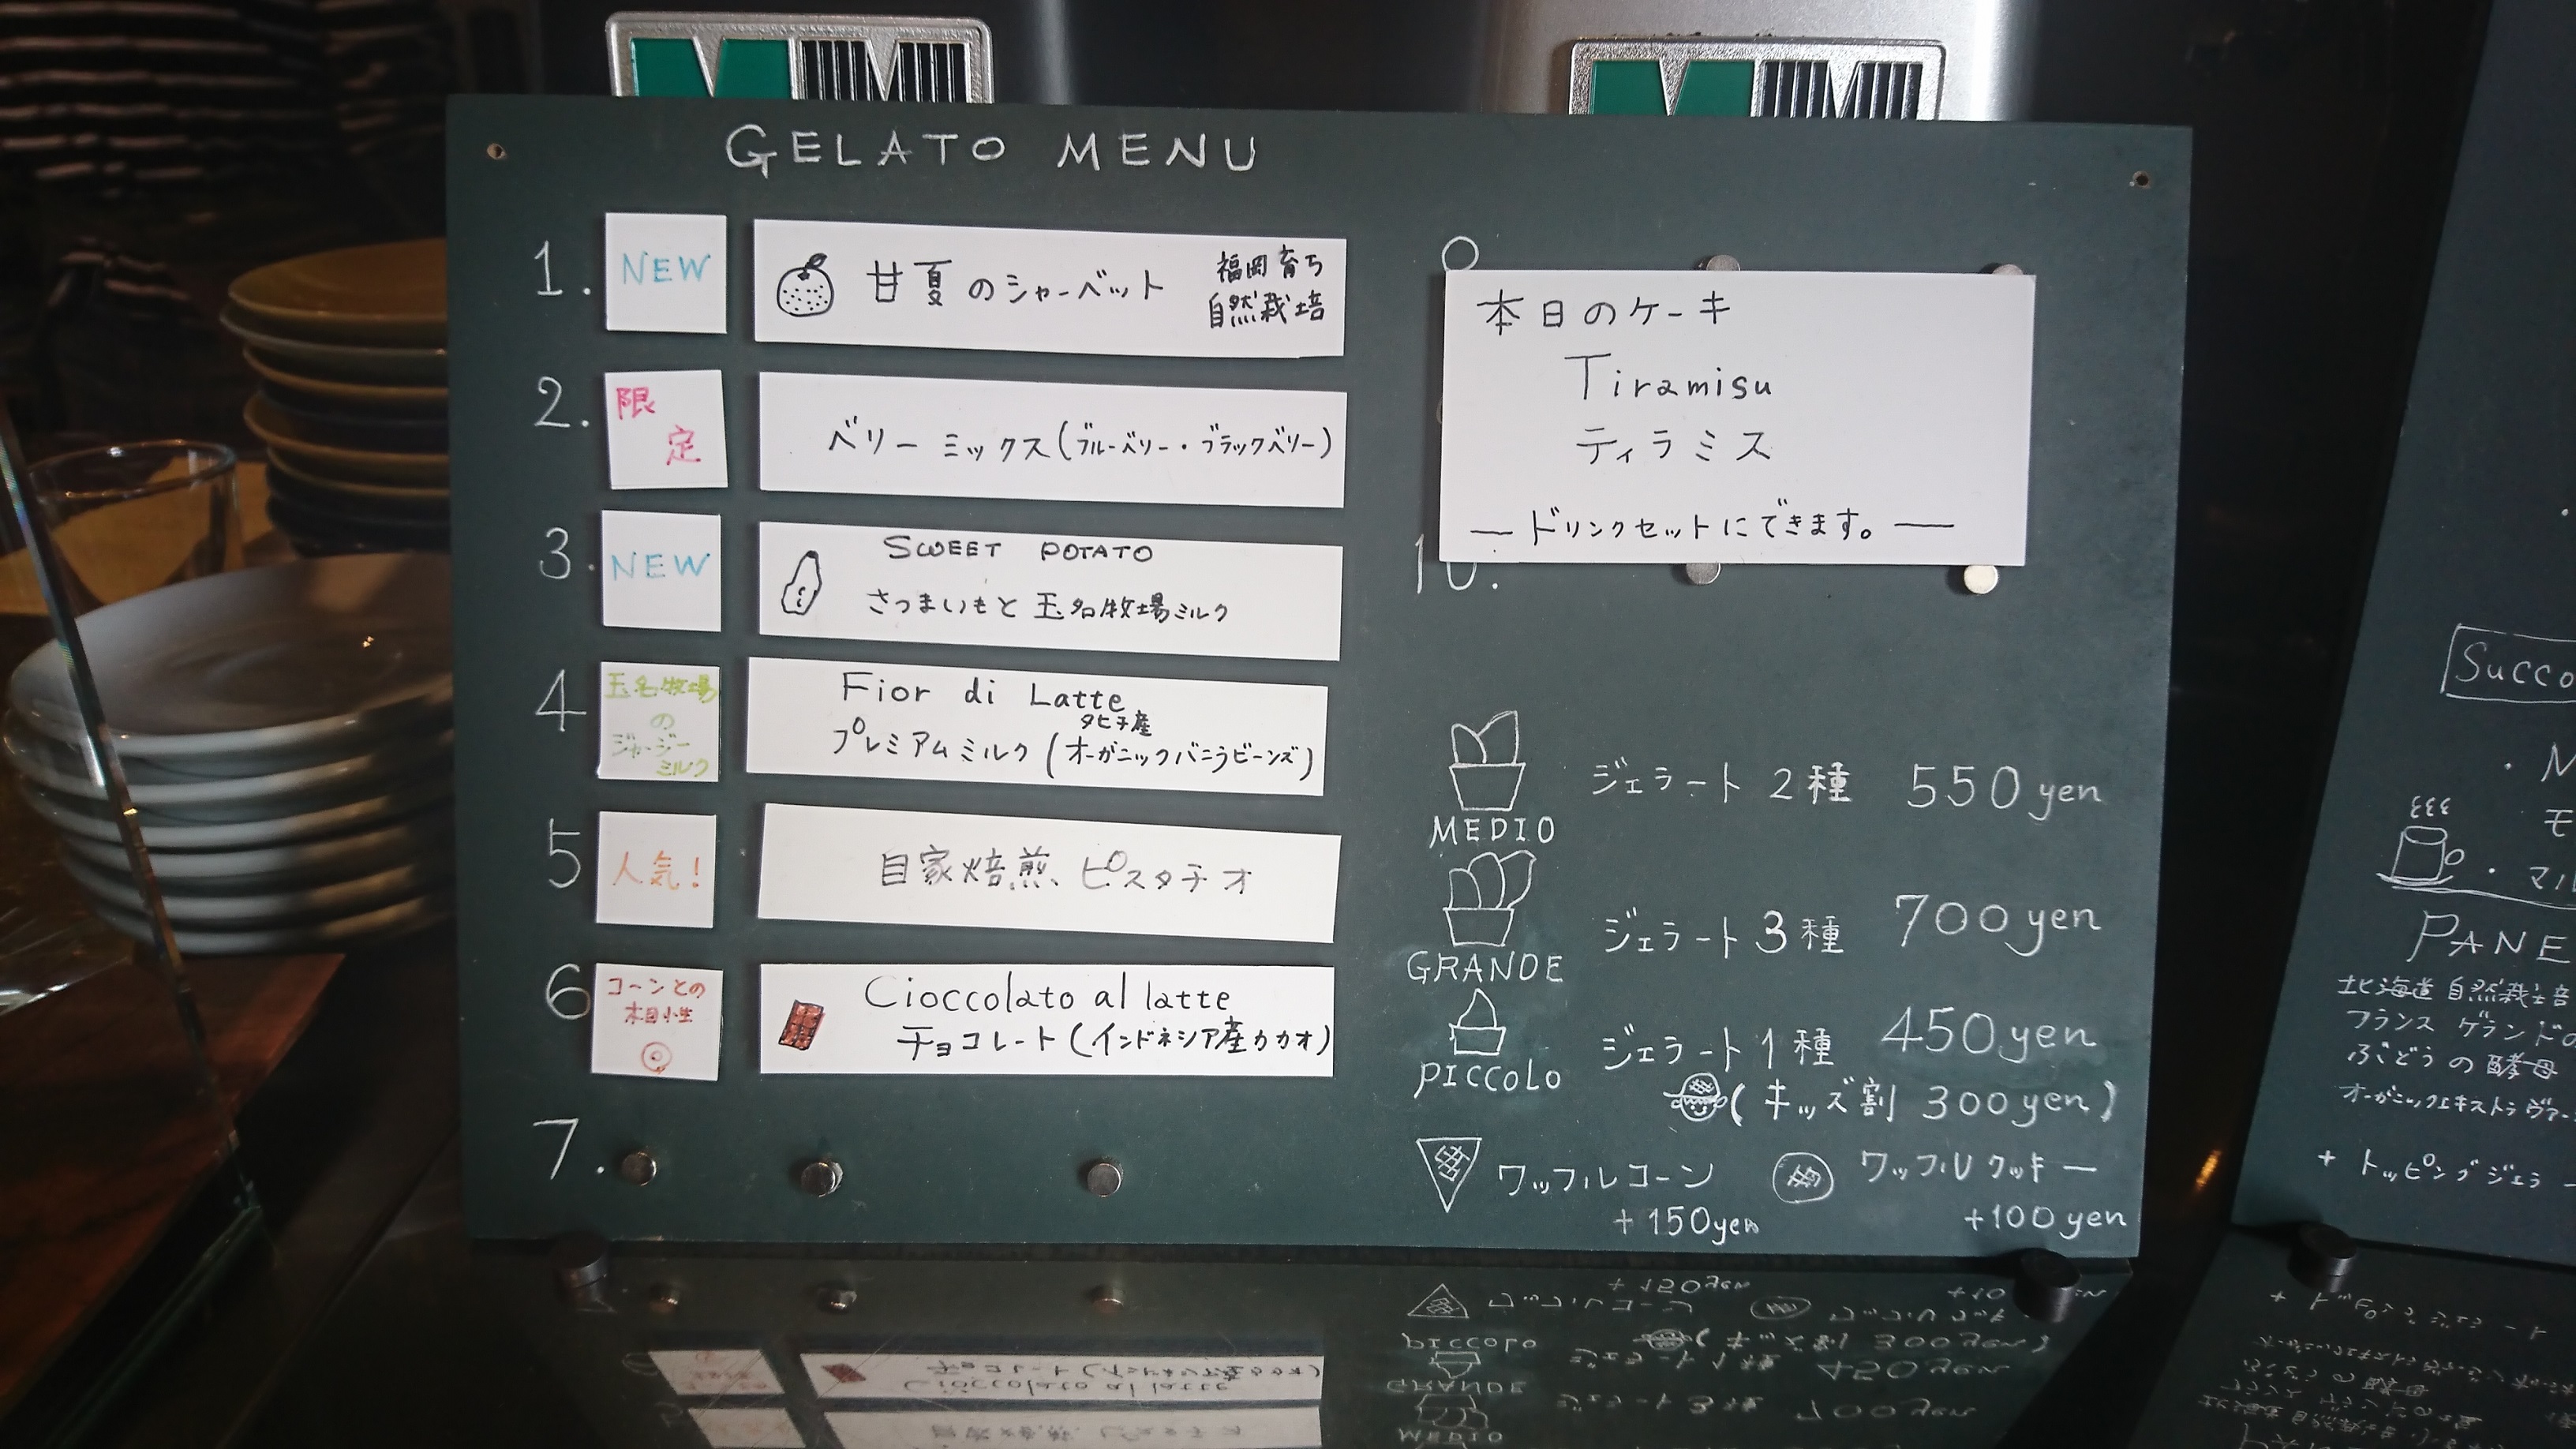 GELATO MENU
1. NEW 甘夏のシャーベット 福岡育ち
自然栽培
2. 限定 ベリーミックス(ブルーベリー・ブラックベリー)
3. NEW SWEET POTATO
さつまいもと玉名牧場ミルク
4 玉名牧場
の
ジャージー
ミルク
Fior di Latte
タヒチ産
プレミアムミルク(オーガニックバニラビーンズ)
5 人気! 自家焙煎、ピスタチオ
6 コーンとの
相性
◎
Cioccolato al latte
チョコレート(インドネシア産カカオ)
7.
本日のケーキ
Tiramisu
ティラミス
— ドリンクセットにできます。 —
10.
MEDIO ジェラート2種 550yen
GRANDE ジェラート3種 700yen
PICCOLO ジェラート1種 450yen
(キッズ割 300yen)
ワッフルコーン
+150yen
ワッフルクッキー
+100yen
Succo
PANE
北海道 自然栽培
フランス ゲランドの
ぶどうの酵母
オーガニックエキストラヴァー
+ トッピングジェラー